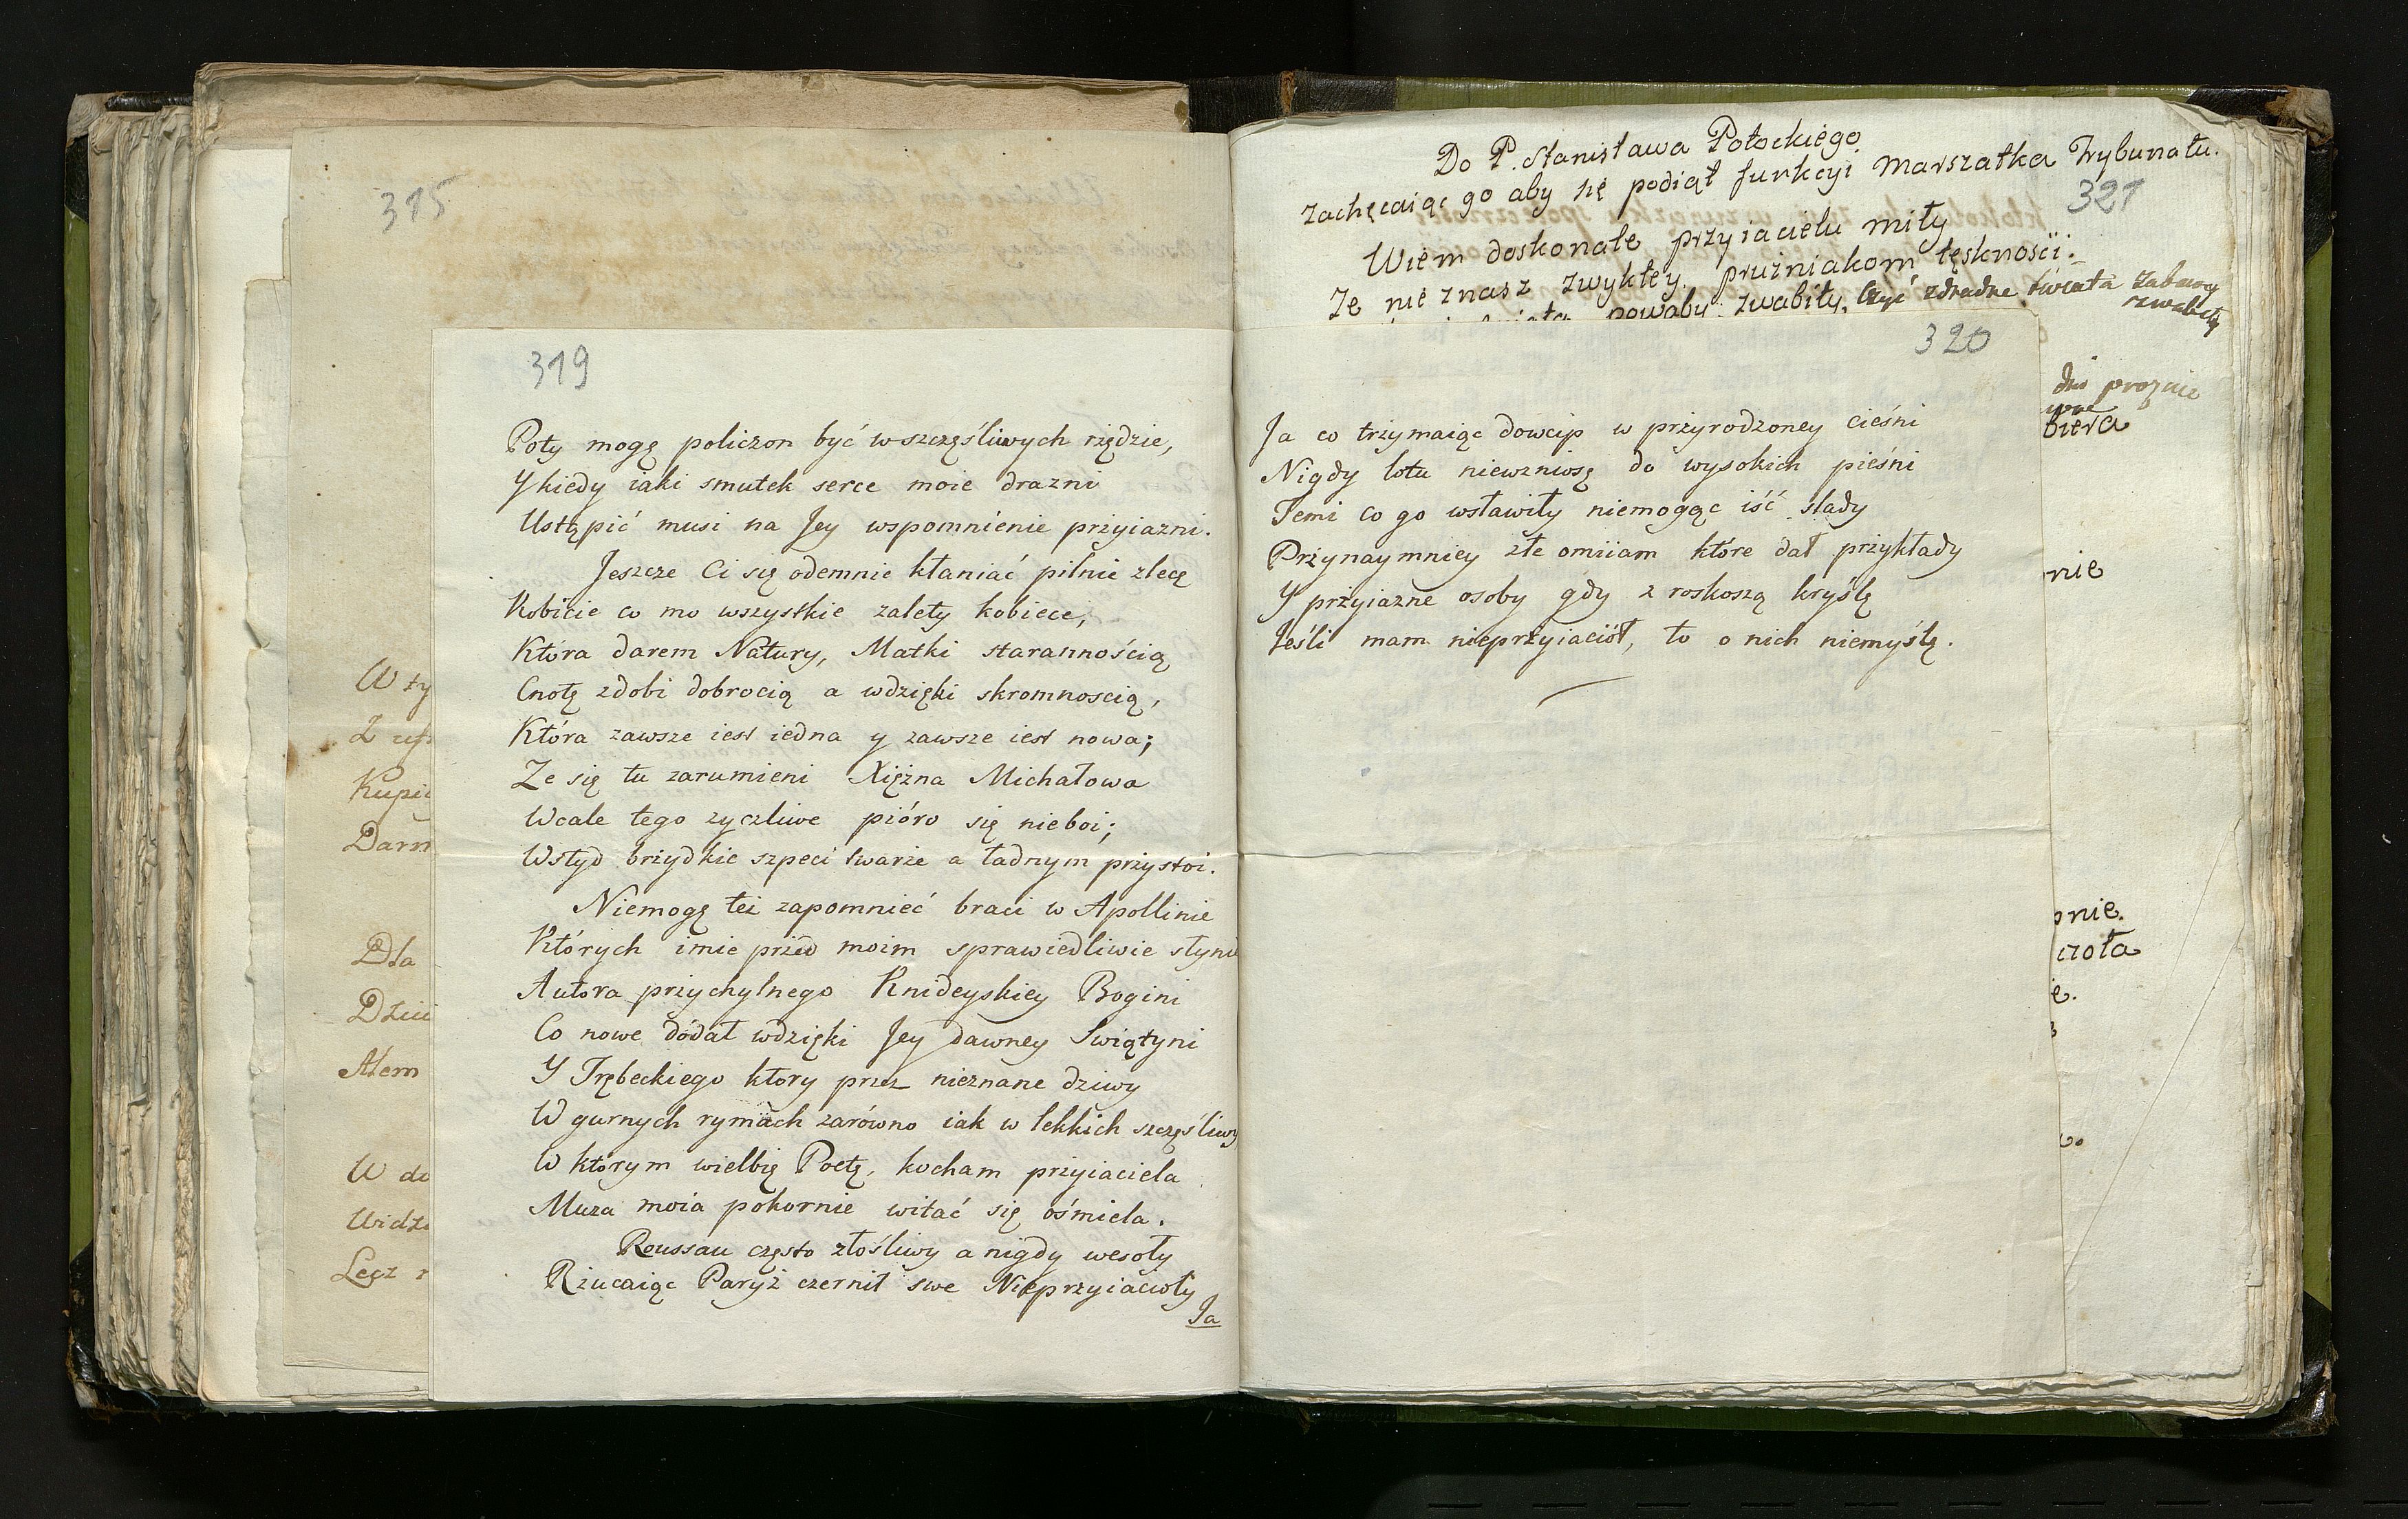 315
W ty
Kupi
Darn
Dla
Dzii
Alem
W do
Widz
Lecz
319
Poty mogę policzon być w szczęśliwych rzędzie,
Y kiedy iaki smutek serce moie drazni
Ustąpić musi na Jey wspomnienie przyiazni.
Jeszcze Ci się odemnie kłaniać pilnie zlecę
Kobicie co ma wszystkie zalety kobiece,
Która darem Natury, Matki starannością
Cnotę zdobi dobrocią a wdzięki skromnoscią,
Która zawsze iest iedna y zawsze iest nowa;
Ze się tu zarumieni Xiężna Michałowa
Wcale tego zyczliwe pióro się nieboi;
Wstyd brzydkie szpeci twarze a ładnym przystoi.
Niemogę też zapomnieć braci w Apollinie
Których imie przed moim sprawiedliwie słynie
Autora przychylnego Knideyskiey Bogini
Co nowe dódał wdzięki Jey dawney Swiątyni
Y Trębeckiego ktory przez nieznane dziwy
W gurnych rymach zarówno iak w lekkich szczęśliwy
W ktorym wielbię Poetę, kocham przyiaciela
Muza moia pokornie witać się ośmiela.
Roussau często złośliwy a nigdy wesoły
Rzucaiąc Paryż czernił swe Nieprzyiacioły
Ja
Do P. Stanisława Potockiego
zachęcaiąc go aby się podiął funkcyi Marszałka Trybunału.
321
Wiem doskonale przyiacielu miły
Ze nie znasz zwykłey prużniakom tęskności:
powaby zwabiły, Czyć zdradne świata zabawy
zwabiły
320
Ja co trzymaiąc dowcip w przyrodzoney cieśni
Nigdy lotu niewzniosę do wysokich pieśni
Temi co go wsławiły niemogąc iść slady
Przynaymniey złe omiiam które dał przykłady
Y przyiazne osoby gdy z roskoszą kryślę
Jeśli mam nieprzyiaciół, to o nich niemyślę.
proznie
biera
nie
nie.
czoła
e.